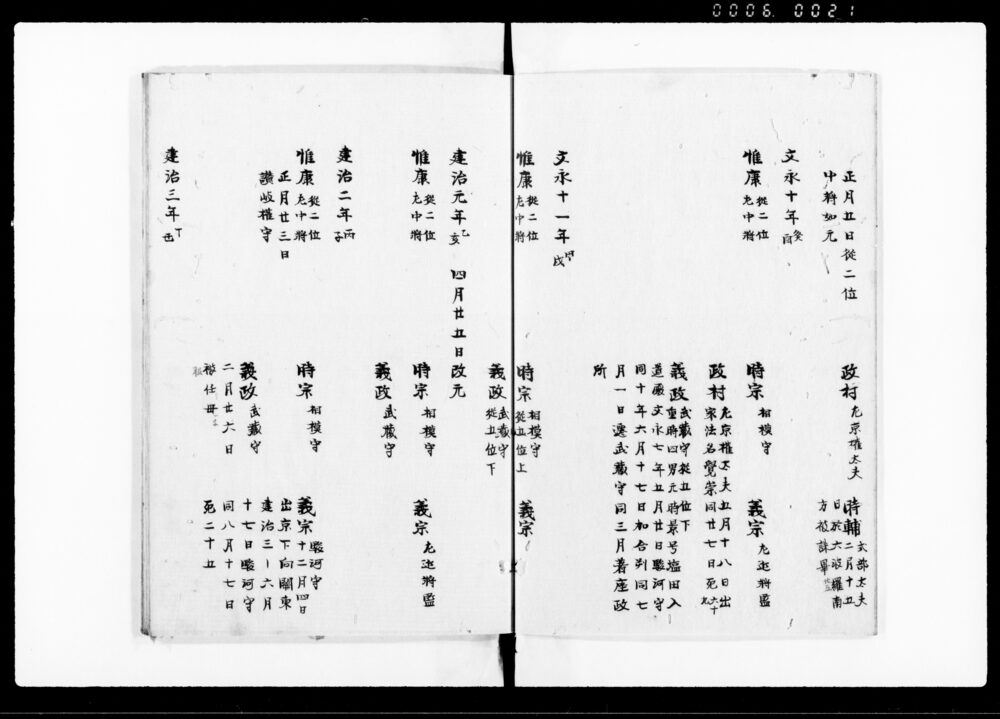 0006 0021
正月五日從二位
中將如元
政村 左京權大夫
時輔 式部大夫
二月十五
日於六波羅南
方被誅畢
文永十年 癸酉
惟康 從二位
左中將
時宗 相模守
義宗 左近將監
政村 左京權大夫五月十八日出
家法名覺崇同廿七日死 六十九
義政 武藏守從五位下
重時四男元時景号塩田入
道 文永七年五月廿日駿河守
同十年六月十七日加合判同七
月一日遷武藏守同三月著座政
所
文永十一年 甲戌
惟康 從二位
左中將
時宗 相模守
從五位上
義宗
義政 武藏守
從五位下
建治元年 乙亥 四月廿五日改元
惟康 從二位
左中將
時宗 相模守
義宗 左近將監
義政 武藏守
建治二年 丙子
惟康 從二位
左中將
正月廿三日
讚岐權守
時宗 相模守
義宗 駿河守
十二月四日
出京下向關東
建治三ー六月
十七日駿河守
同八月十七日
死二十五
義政 武藏守
二月廿六日
被任
建治三年 丁丑